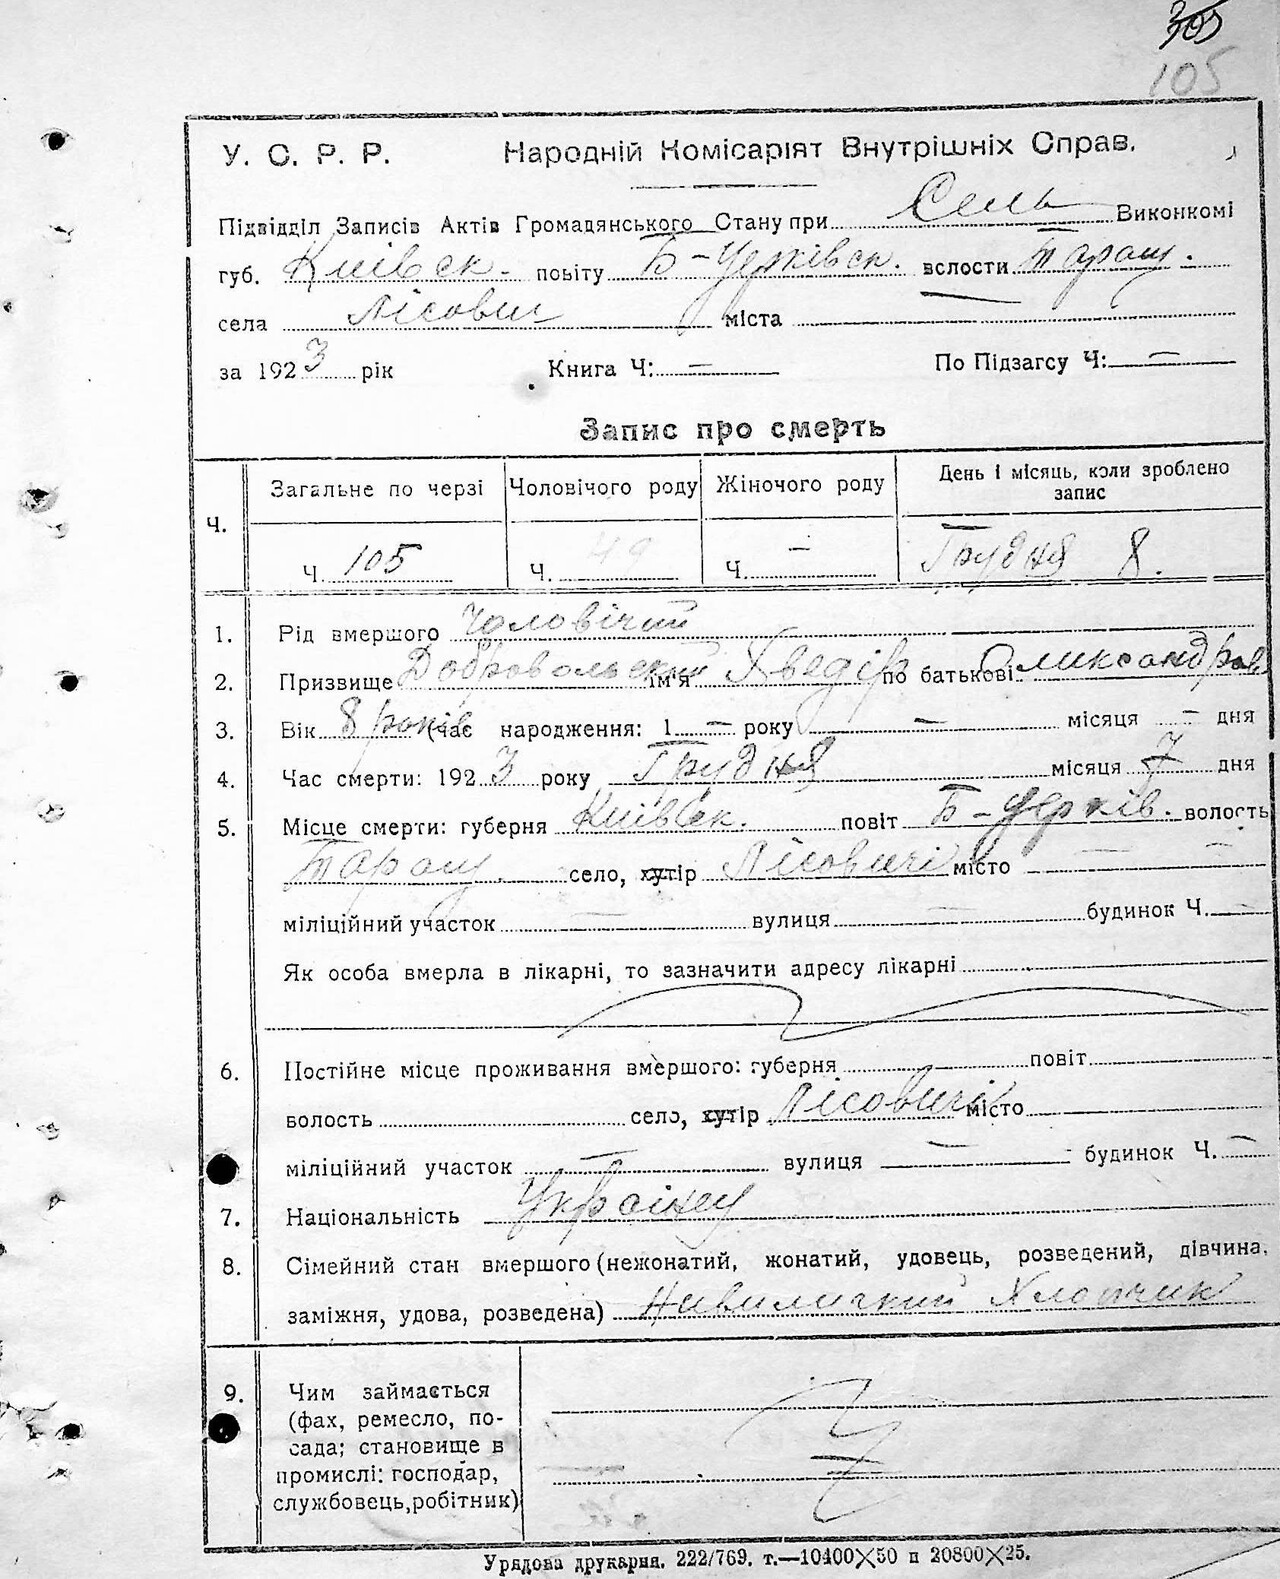 305
105
У. С. Р. Р. Народній Комісаріят Внутрішніх Справ.
Підвідділ Записів Актів Громадянського Стану при Сель Виконкомі
губ. Київск. повіту Б-Церківск. волости Таращ.
села Лісович міста
за 1923 рік Книга Ч: — По Підзагсу Ч: —
Запис про смерть
Ч. Загальне по черзі Чоловічого роду Жіночого роду День і місяць, коли зроблено запис
Ч. 105 Ч. 49 Ч. — Грудня 8.
1. Рід вмершого Чоловічий
2. Призвище Добровольский ім'я Хведір по батькові Оликсандров
3. Вік 8 років (час народження: 1 — року — місяця — дня
4. Час смерти: 1923 року Грудня місяця 7 дня
5. Місце смерти: губерня Київск. повіт Б-Церків. волость
Таращ. село, хутір Лісовичі місто — —
міліційний участок — вулиця — будинок Ч. —
Як особа вмерла в лікарні, то зазначити адресу лікарні
6. Постійне місце проживання вмершого: губерня повіт
волость село, хутір Лісовичі місто
міліційний участок — вулиця — будинок Ч. —
7. Національність Украінец
8. Сімейний стан вмершого (нежонатий, жонатий, удовець, розведений, дівчина,
заміжня, удова, розведена) Нивиличкий Хлопчик
9. Чим займається
(фах, ремесло, по-
сада; становище в
промислі: господар,
службовець, робітник)
Урядова друкарня. 222/769. т.—10400×50 п 20800×25.